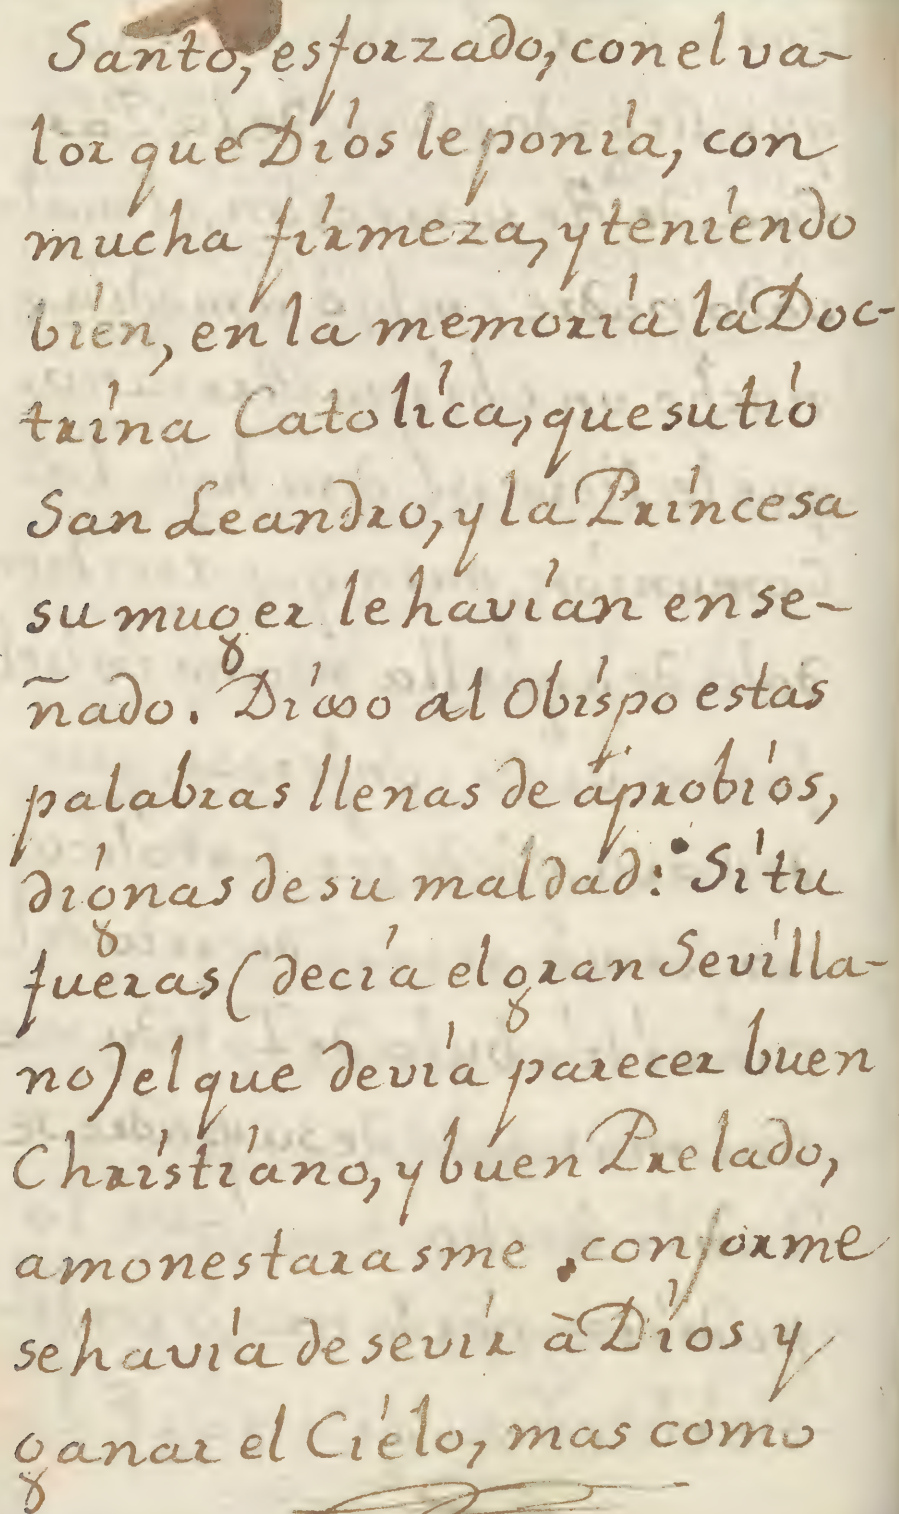 Santo, esforzado, con el va-
lor que Dios le ponía, con
mucha firmeza, y teniendo
bien, en la memoria la Doc-
trina Catolica, que su tio
San Leandro, y la Princesa
su muger le havian ense-
ñado. Dixo al Obispo estas
palabras llenas de aprobios,
dignas de su maldad: Si tu
fueras (decia el gran Sevilla-
no) el que devia parecer buen
Christiano, y buen Prelado,
amonestarasme, conforme
se havia de sevir à Dios y
ganar el Cielo, mas como